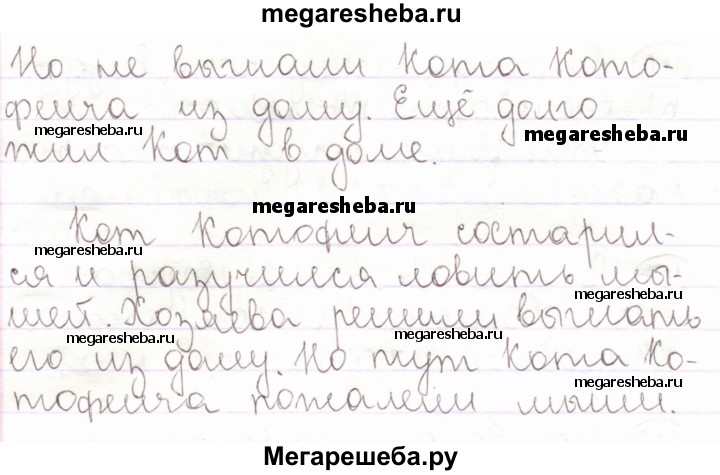 megaresheba.ru
Но не выгнали Кота Кото-
феича из дому. Ещё долго
megaresheba.ru
megaresheba.ru
жил Кот в доме.
megaresheba.ru
megaresheba.ru
Кот Котофеич состарил-
megaresheba.ru
ся и разучился ловить мы-
megaresheba.ru
шей. Хозяева решили выгнать
megaresheba.ru
его из дому. Но тут Кота Ко-
megaresheba.ru
megaresheba.ru
тофеича пожалели мыши.
Мегарешеба.ру